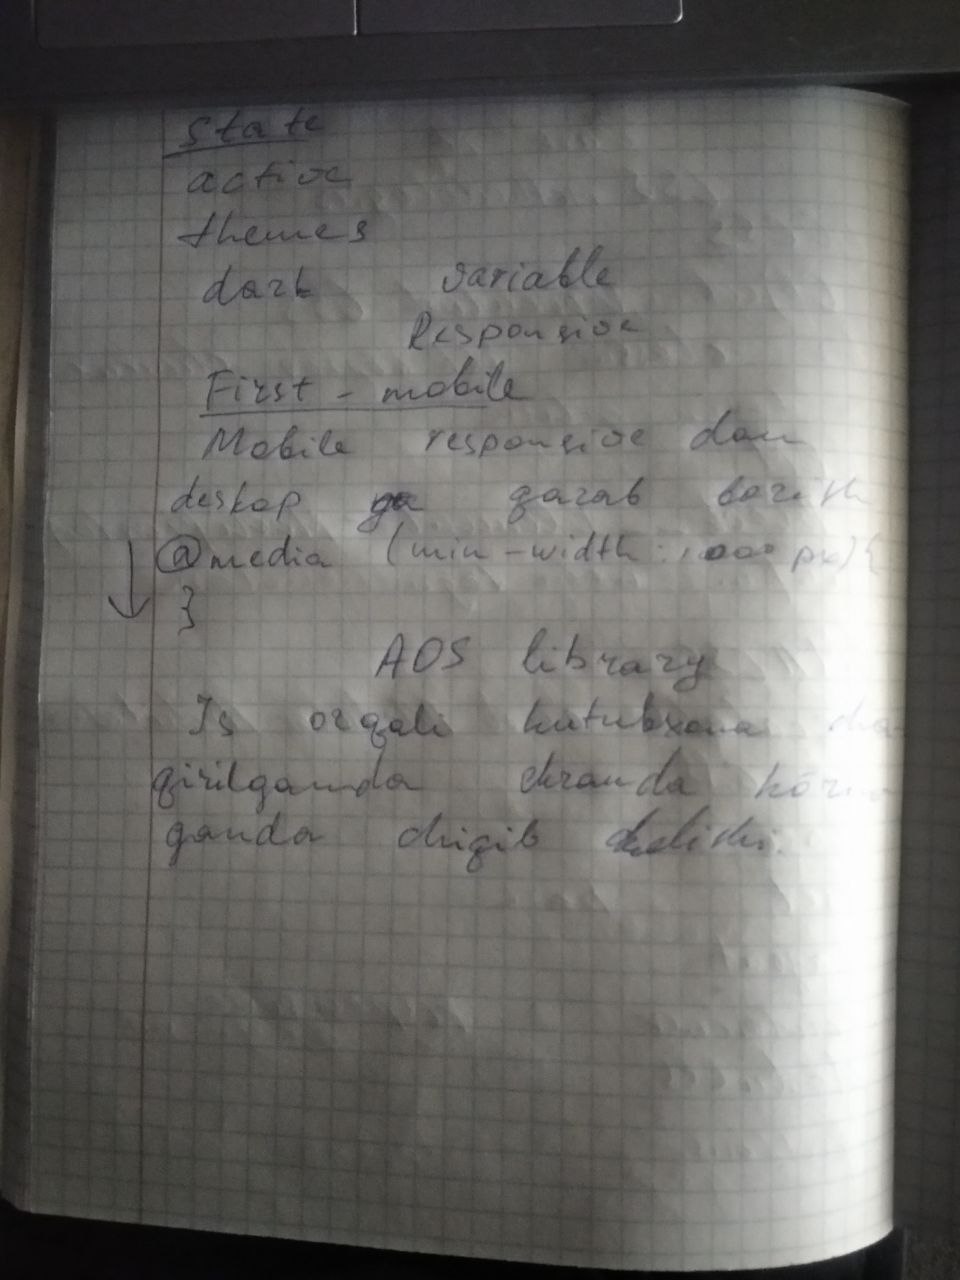 state
active
themes
dark variable
Responsive
First - mobile
Mobile responsive dan
deskop ga qarab borish
@media (min-width: 1000px) {
}
AOS library
Js orqali kutubxona cha
qirilganda ekranda körin
ganda chiqib kelishi.